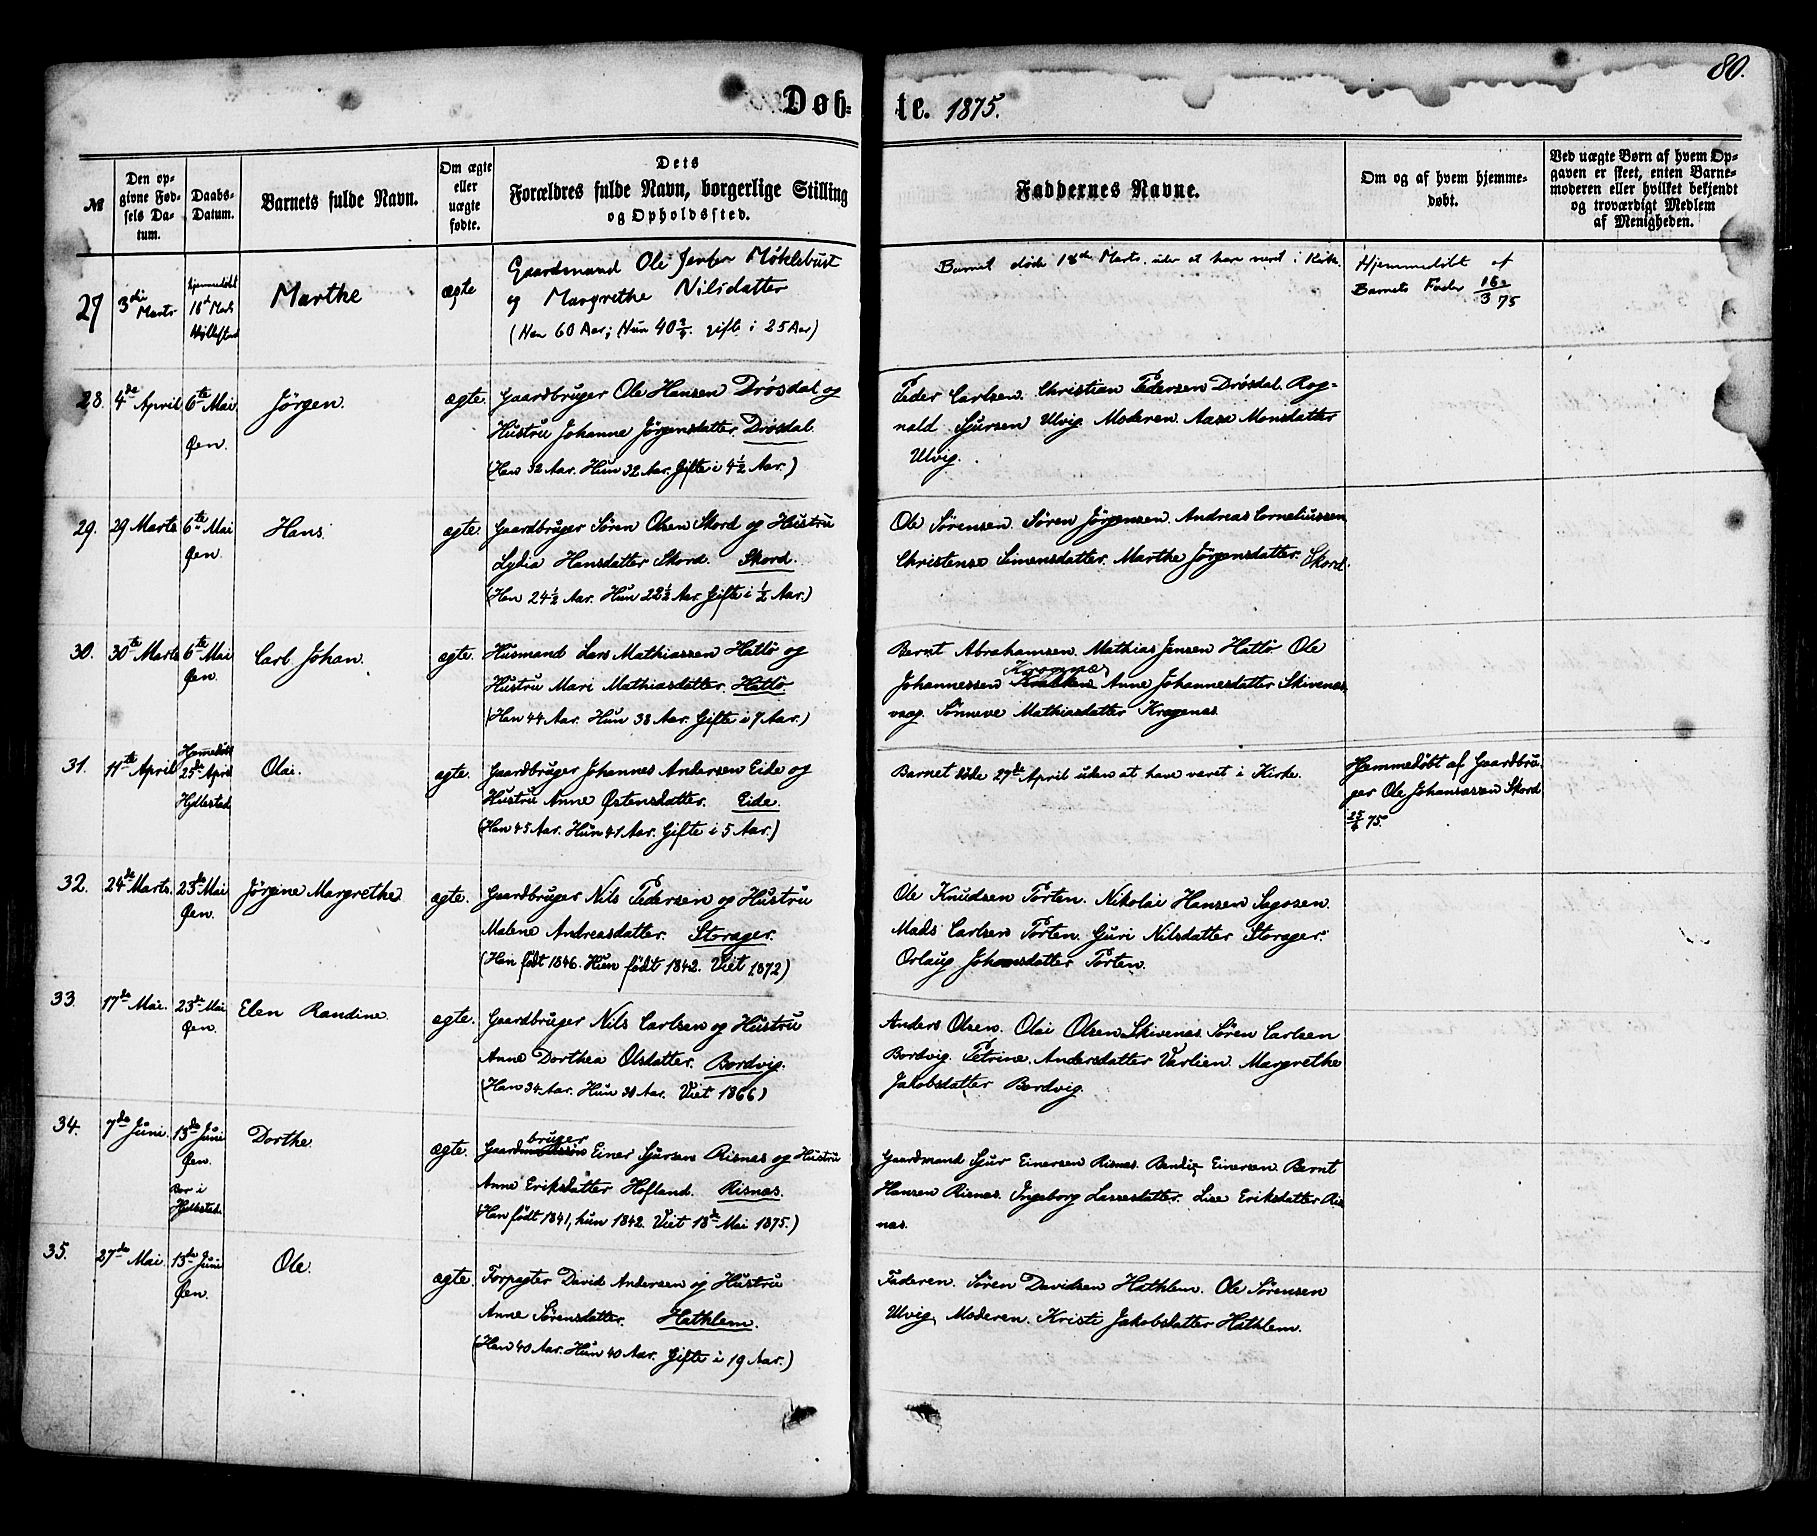 80.
Døb-te. 1875.
№
Den opgivne Fødsels Datum.
Daabs-Datum.
Barnets fulde Navn.
Om ægte eller uægte fødte.
Dets Forældres fulde Navn, borgerlige Stilling og Opholdssted.
Faddernes Navne.
Om og af hvem hjemmedøbt.
Ved uægte Børn af hvem Opgaven er skeet, enten Barnemoderen eller hvilket bekjendt og troværdigt Medlem af Menigheden.
27
3die Marts
Hjemmedøbt
16de Marts
Hyllestad
Marthe
ægte
Gaardmand Ole Jensen Møklebust
og Margrethe Nilsdatter
(Han 60 Aar; Hun 40 gifte i 25 Aar)
Barnet døde 18de Marts uden at have været i Kirke.
Hjemmedøbt af
Barnets Fader 16/3 75
28.
4de April
6te Mai
Øen.
Jörgen.
ægte.
Gaardbruger Ole Hansen Drösdal og
Hustru Johanne Jörgensdatter Drösdal.
(Han 32 Aar. Hun 32 Aar. Gifte i 4½ Aar.)
Peder Carlsen. Christian Pedersen Drösdal. Rog-
nald Sjursen Ulvig. Moderen. Aasa Monsdatter
Ulvig.
29.
29 Marts
6te Mai
Øen.
Hans.
ægte.
Gaardbruger Sören Olsen Skord og Hustru
Lydia Hansdatter Skord. Skord.
(Han 24½ Aar. Hun 22½ Aar. Gifte i ½ Aar.)
Ole Sörensen. Sören Jörgensen. Andreas Corneliussen
Christense Simensdatter. Marthe Jörgensdatter. Skord.
30.
30te Marts
6te Mai
Øen.
Carl Johan.
ægte.
Husmand Lars Mathiassen Hattö og
Hustru Mari Mathiasdatter. Hattö.
(Han 44 Aar. Hun 38 Aar. Gifte i 7 Aar.)
Bernt Abrahamsen. Mathias Jensen Hattö Ole
Johannessen Anne Johannesdatter Skivenes-
vaag. Sönneve Mathiasdatter Kragenæs.
31.
11te April
Hjemmedøbt
25de April
Hyllestad
Olai.
ægte.
Gaardbruger Johannes Andersen Eide og
Hustru Anne Østensdatter. Eide.
(Han 45 Aar. Hun 41 Aar. Gifte i 5 Aar.)
Barnet døde 27de April uden at have været i Kirke.
Hjemmedøbt af Gaardbru-
ger Ole Johannesen Skord
25/4 75.
32.
24de Marts.
23de Mai
Øen.
Jörgine Margrethe
ægte.
Gaardbruger Nils Pedersen og Hustru
Malene Andreasdatter. Storager.
(Han født 1846. Hun født 1842. Viet 1872)
Ole Knudsen Porten. Nikolai Hansen Sagosen.
Mads Carlsen Porten. Guri Nilsdatter Storager.
Orlaug Johansdatter Porten.
33.
17de Mai.
23de Mai
Øen.
Elen Randine.
ægte.
Gaardbruger Nils Carlsen og Hustru
Anne Dorthea Olsdatter. Bordvig.
(Han 34 Aar. Hun 38 Aar. Viet 1866)
Anders Olsen. Olai Olsen Skivenes. Sören Carlsen
Bordvig. Petrine Andersdatter Varlien. Margrethe
Jakobsdatter Bordvig.
34.
7de Juni.
13de Juni
Øen.
Bor i
Hyllestad.
Dorthe.
ægte.
Gaardbruger Einer Sjursen Risnæs og Hustru
Anne Eriksdatter Hofland. Risnæs.
(Han født 1841, hun 1842. Viet 18de Mai 1875.)
Gaardmand Sjur Einersen Risnæs. Bendix Einersen. Bernt
Hansen Risnæs. Ingeborg Lassesdatter. Lise Eriksdatter Ris-
næs.
35.
27de Mai
13de Juni
Øen.
Ole.
ægte.
Forpagter David Andersen og Hustru
Anne Sörensdatter. Hathlem.
(Han 40 Aar. Hun 40 Aar. Gifte i 19 Aar.)
Faderen. Sören Davidsen Hathlem. Ole Sörensen
Ulvig. Moderen. Kristi Jakobsdatter Hathlem.